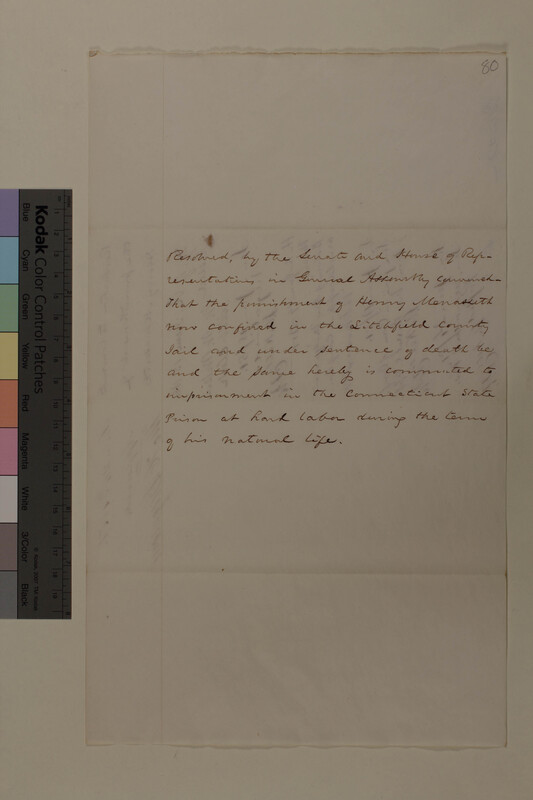 80
Resolved, by the Senate and House of Rep-
resentatives in General Assembly
That the punishment of Henry Menasseth
now confined in the Litchfield County
Jail and under sentence of death be
and the same hereby is commuted to
imprisonment in the Connecticut State
Prison at hard labor during the term
of his natural life.
Kodak Color Control Patches
Blue
Cyan
Green
Yellow
Red
Magenta
White
3/Color
Black